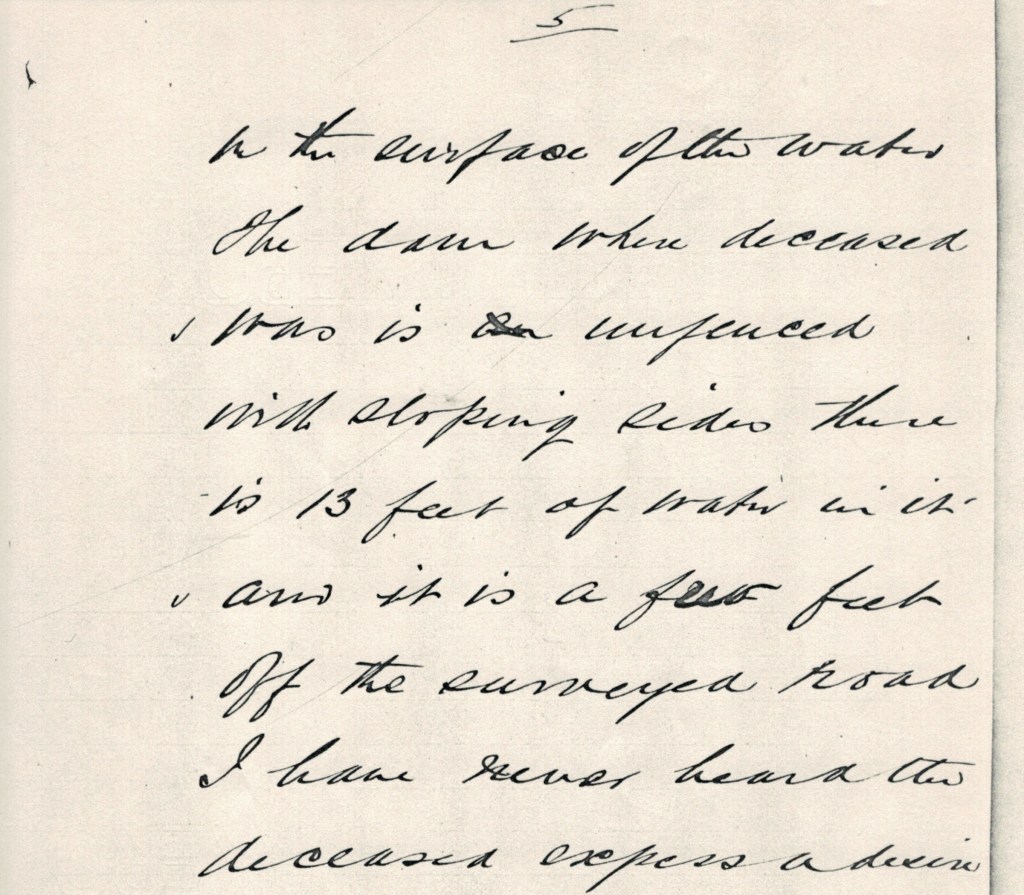 5
on the surface of the water
The dam where deceased
was is unfenced
with sloping sides there
is 13 feet of water in it
and it is a few feet
off the surveyed road
I have never heard the
deceased express a desire